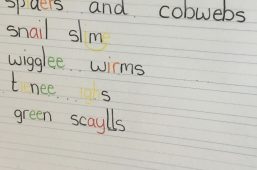 spiders and cobwebs
snail slime
wigglee wirms
green scaylls